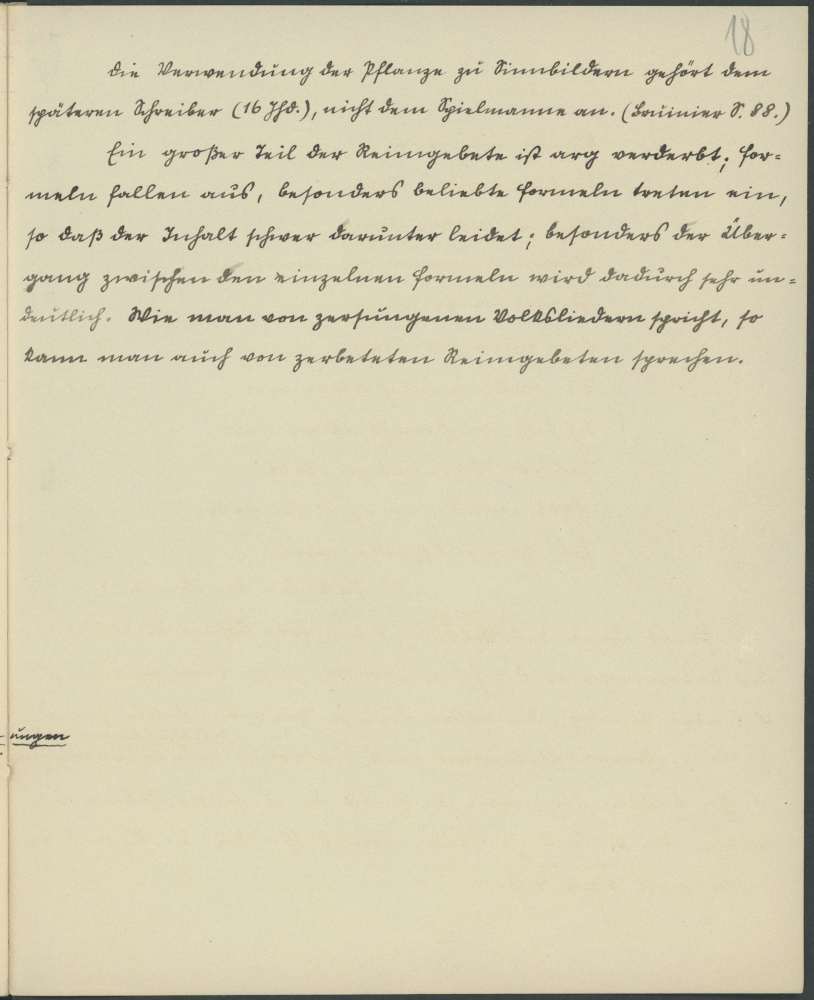 18
Die Verwendung der Pflanze zu Sinnbildern gehört dem
späteren Schreiber (16 Jhd.), nicht dem Spielmanne an. (Bruinier S. 88.)
Ein großer Teil der Reimgebete ist arg verderbt; For-
meln fallen aus, besonders beliebte Formeln treten ein,
so daß der Inhalt schwer darunter leidet; besonders der Über-
gang zwischen den einzelnen Formeln wird dadurch sehr un-
deutlich. Wie man von zersungenen Volksliedern spricht, so
kann man auch von zerbeteten Reimgebeten sprechen.
ungen